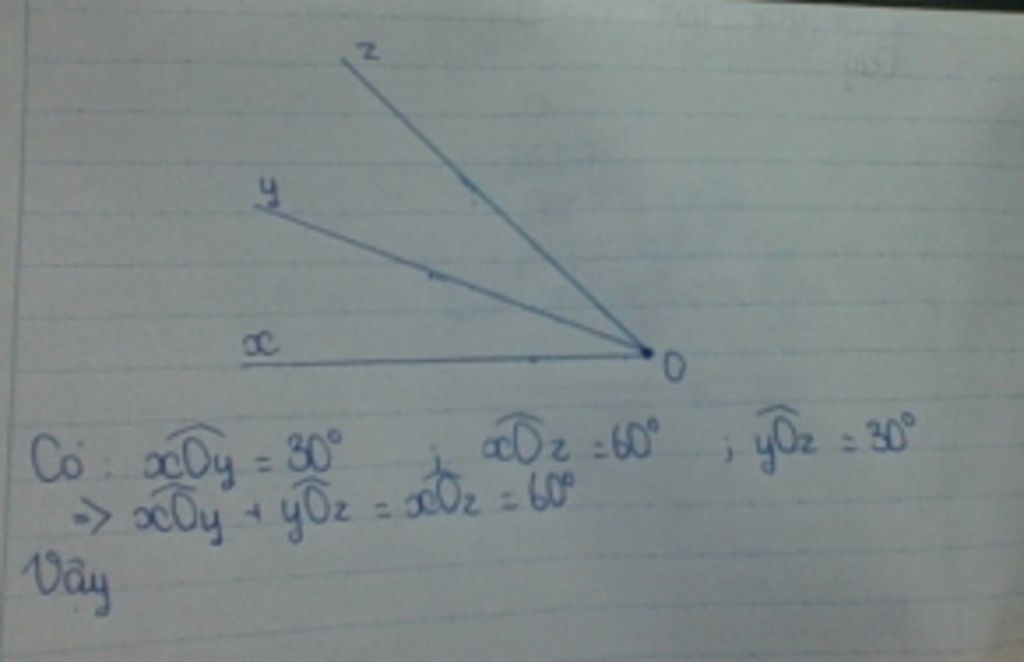 z
y
x
O
Có: xOy = 30° ; xOz = 60° ; yOz = 30°
=> xOy + yOz = xOz = 60°
Vậy